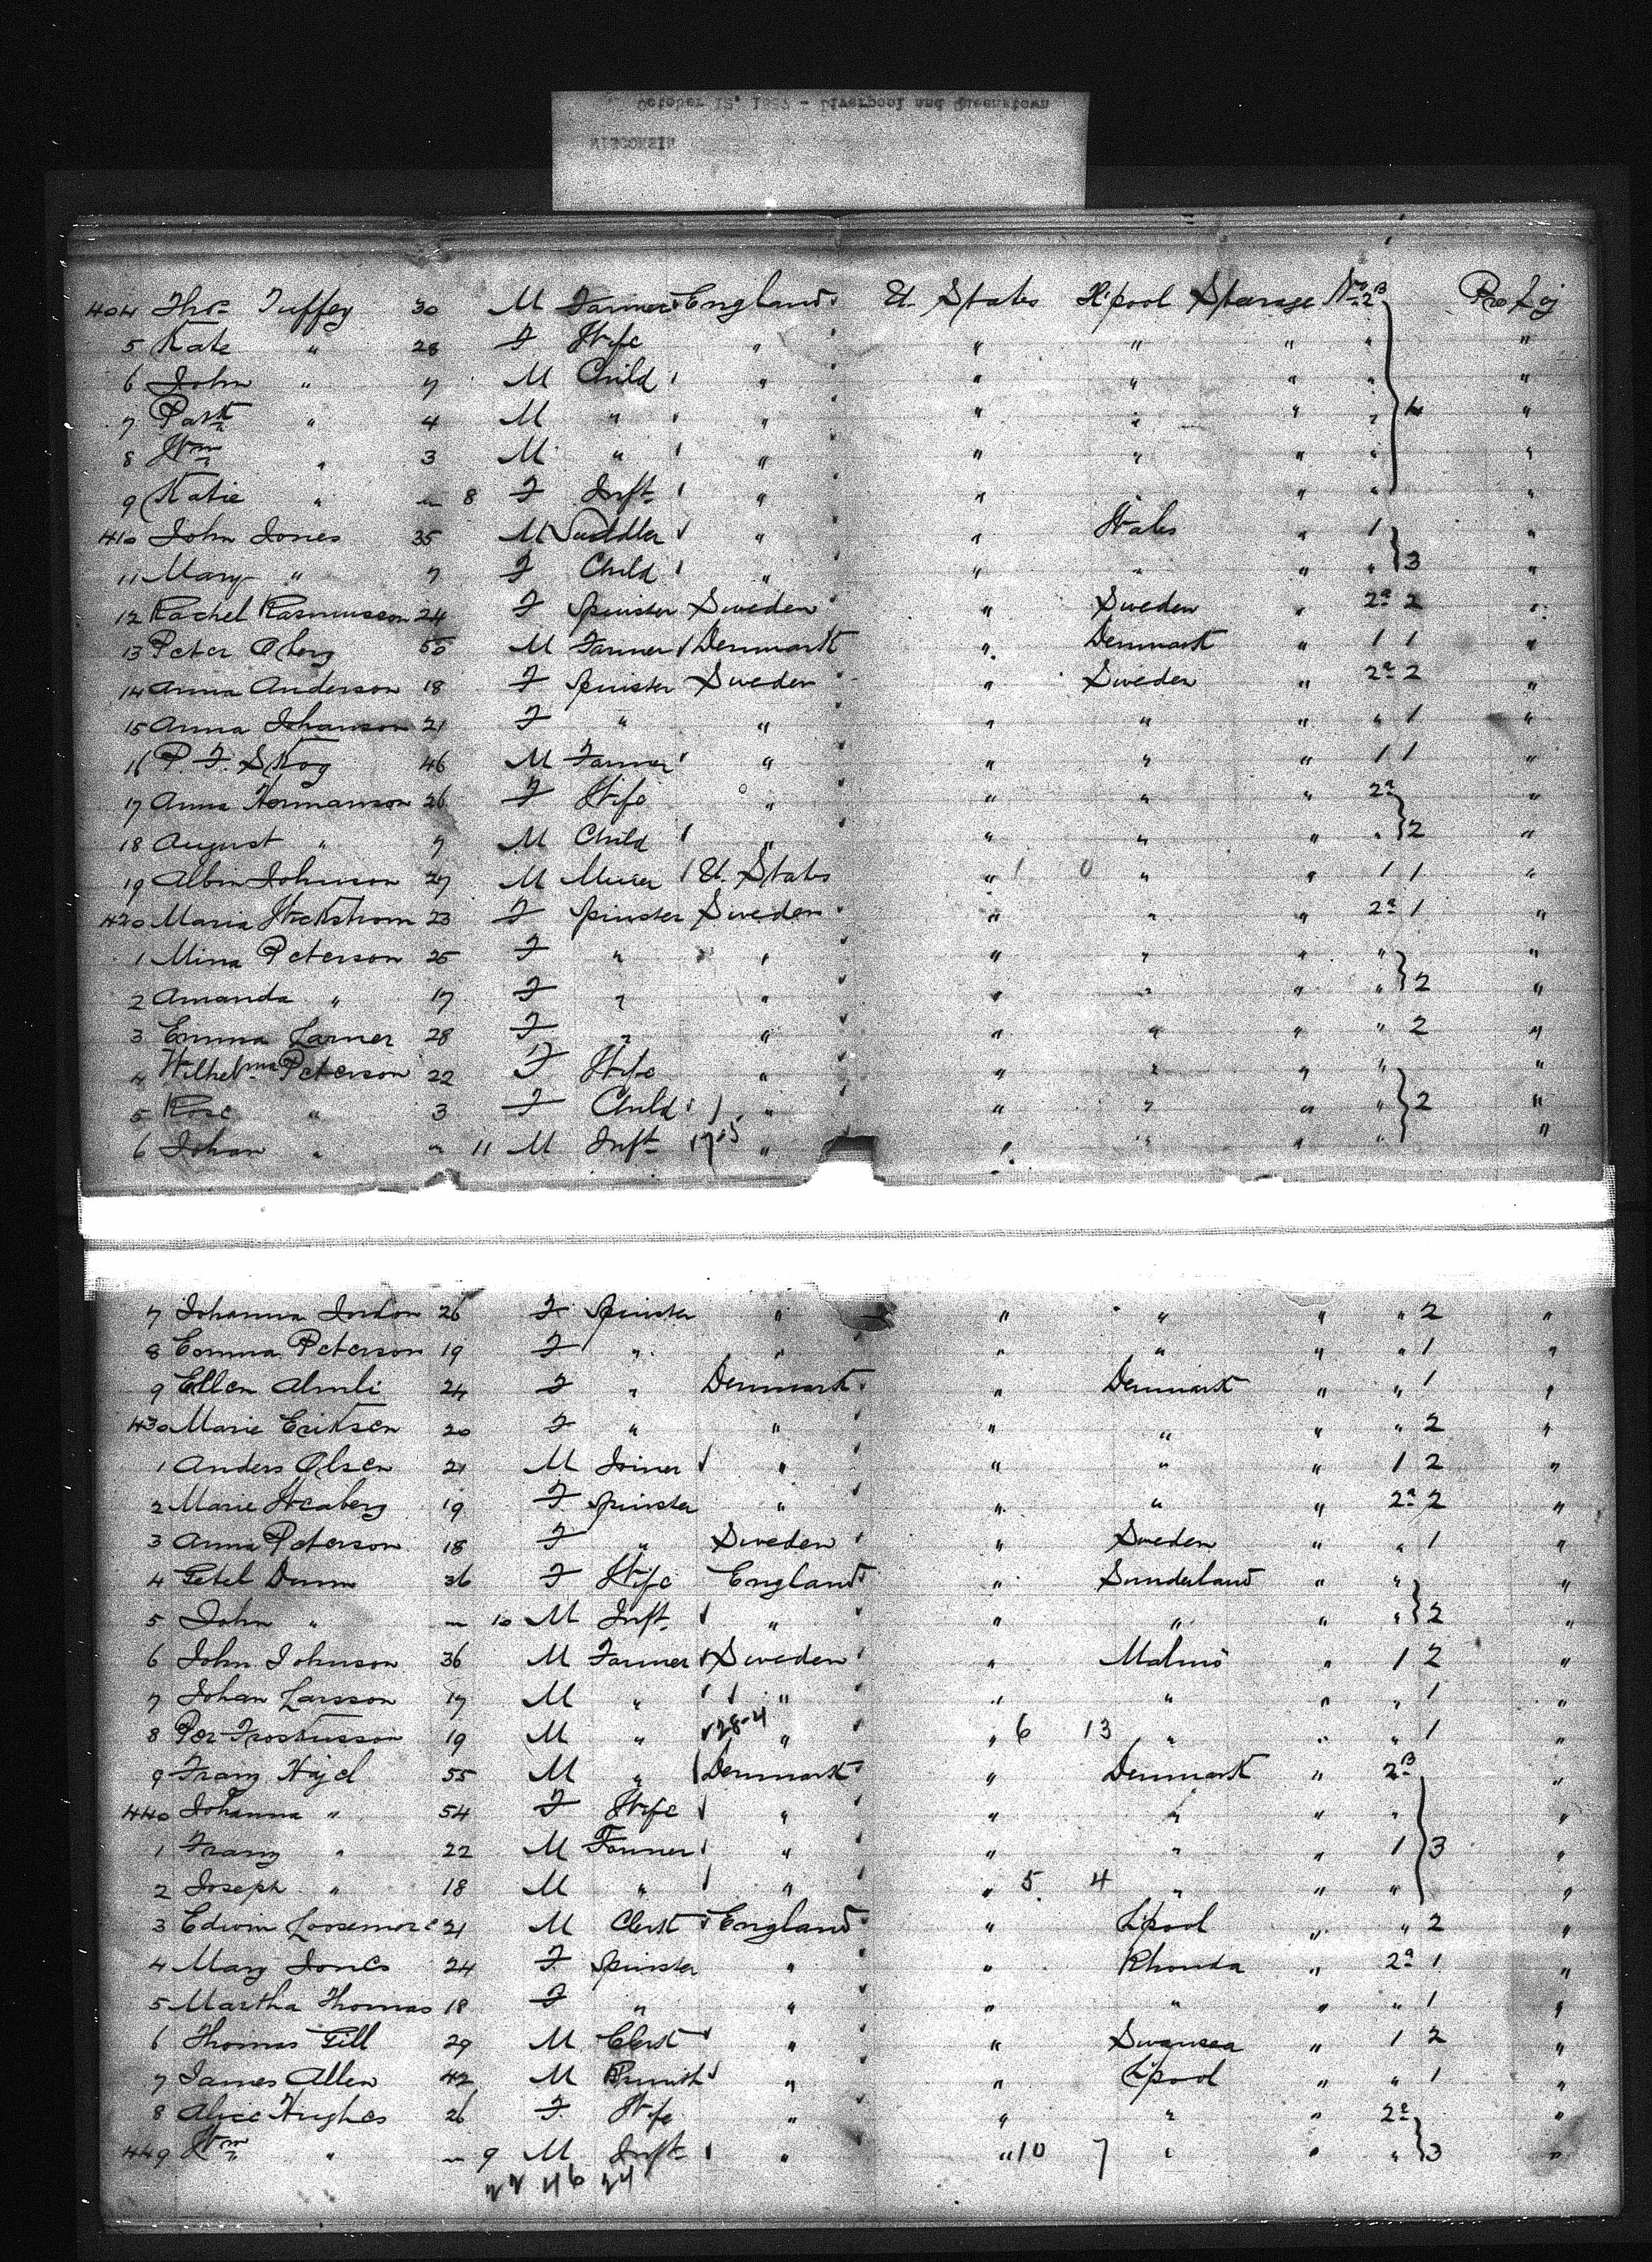 October 12, 1887 - Liverpool and Queenstown
WISCONSIN
404 Thos Tuffey 30 M Farmer England U. States L'pool Steerage No 2B Pro Loj
5 Kate " 28 F Wife " " " " " "
6 John " 7 M Child " " " " " "
7 Patk " 4 M " " " " " " "
8 Wm " 3 M " " " " " " "
9 Katie " 8 F Inft " " " " " "
410 John Jones 35 M Saddler " " Wales " 1 "
11 Mary " 7 F Child " " " " " 3 "
12 Rachel Rasmusson 24 F Spinster Sweden " Sweden " 2a 2 "
13 Peter Oberg 50 M Farmer Denmark " Denmark " 1 1 "
14 Anna Anderson 18 F Spinster Sweden " Sweden " 2a 2 "
15 Anna Johanson 21 F " " " " " " 1 "
16 P. F. Skog 46 M Farmer " " " " 1 1 "
17 Anna Hermanson 26 F Wife " " " " 2a "
18 August " 7 M Child " " " " " 2 "
19 Albin Johnson 27 M Miner U. States " 1 0 " " 1 1 "
420 Maria Wickstrom 23 F Spinster Sweden " " " 2a 1 "
1 Mina Peterson 25 F " " " " " " "
2 Amanda " 17 F " " " " " " 2 "
3 Emma Larner 28 F " " " " " " 2 "
4 Wilhelma Peterson 22 F Wife " " " " " "
5 Rose " 3 F Child " " " " " 2 "
6 Johan " 11 M Inft 17-5 " " " " " "
7 Johanna Jordon 26 F Spinster " " " " " 2 "
8 Emma Peterson 19 F " " " " " " 1 "
9 Ellen Almli 24 F " Denmark " Denmark " " 1 "
430 Marie Eriksen 20 F " " " " " " 2 "
1 Anders Olsen 21 M Joiner " " " " 1 2 "
2 Marie 19 F Spinster " " " " 2a 2 "
3 Anna Peterson 18 F " Sweden " Sweden " " 1 "
4 Dunn 36 F Wife England " Sunderland " "
5 John " 10 M Inft " " " " " 2 "
6 John Johnson 36 M Farmer Sweden " Malmö " 1 2 "
7 Johan Larsson 17 M " " " " " " 1 "
8 Per 19 M " 28-4 " " 6 13 " " " 1
9 Franz Hajel 55 M " Denmark " Denmark " 2B "
440 Johanna " 54 F Wife " " " " " "
1 Franz " 22 M Farmer " " " " 1 3 "
2 Joseph " 18 M " " " 5 4 " " " "
3 Edwin Loosemore 21 M Clerk England " L'pool " " 2 "
4 Mary Jones 24 F Spinster " " Rhonda " 2a 1 "
5 Martha Thomas 18 F " " " " " " 1 "
6 Thomas Gill 29 M Clerk " " Swansea " 1 2 "
7 James Allen 42 M " " L'pool " " 1 "
8 Alice Hughes 26 F Wife " " " " 2a "
449 Wm " 9 M Inft " " 10 7 " " " 3 "
22 46 24